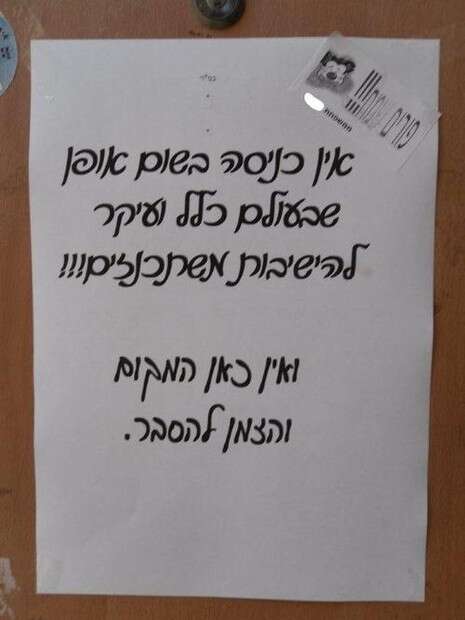 בס"ד
פורים שמח!!!
ממשפחת
אין כניסה בשום אופן
שבעולם כלל ועיקר
להישיבות משתכנזים!!!
ואין כאן המקום
והזמן להסבר.